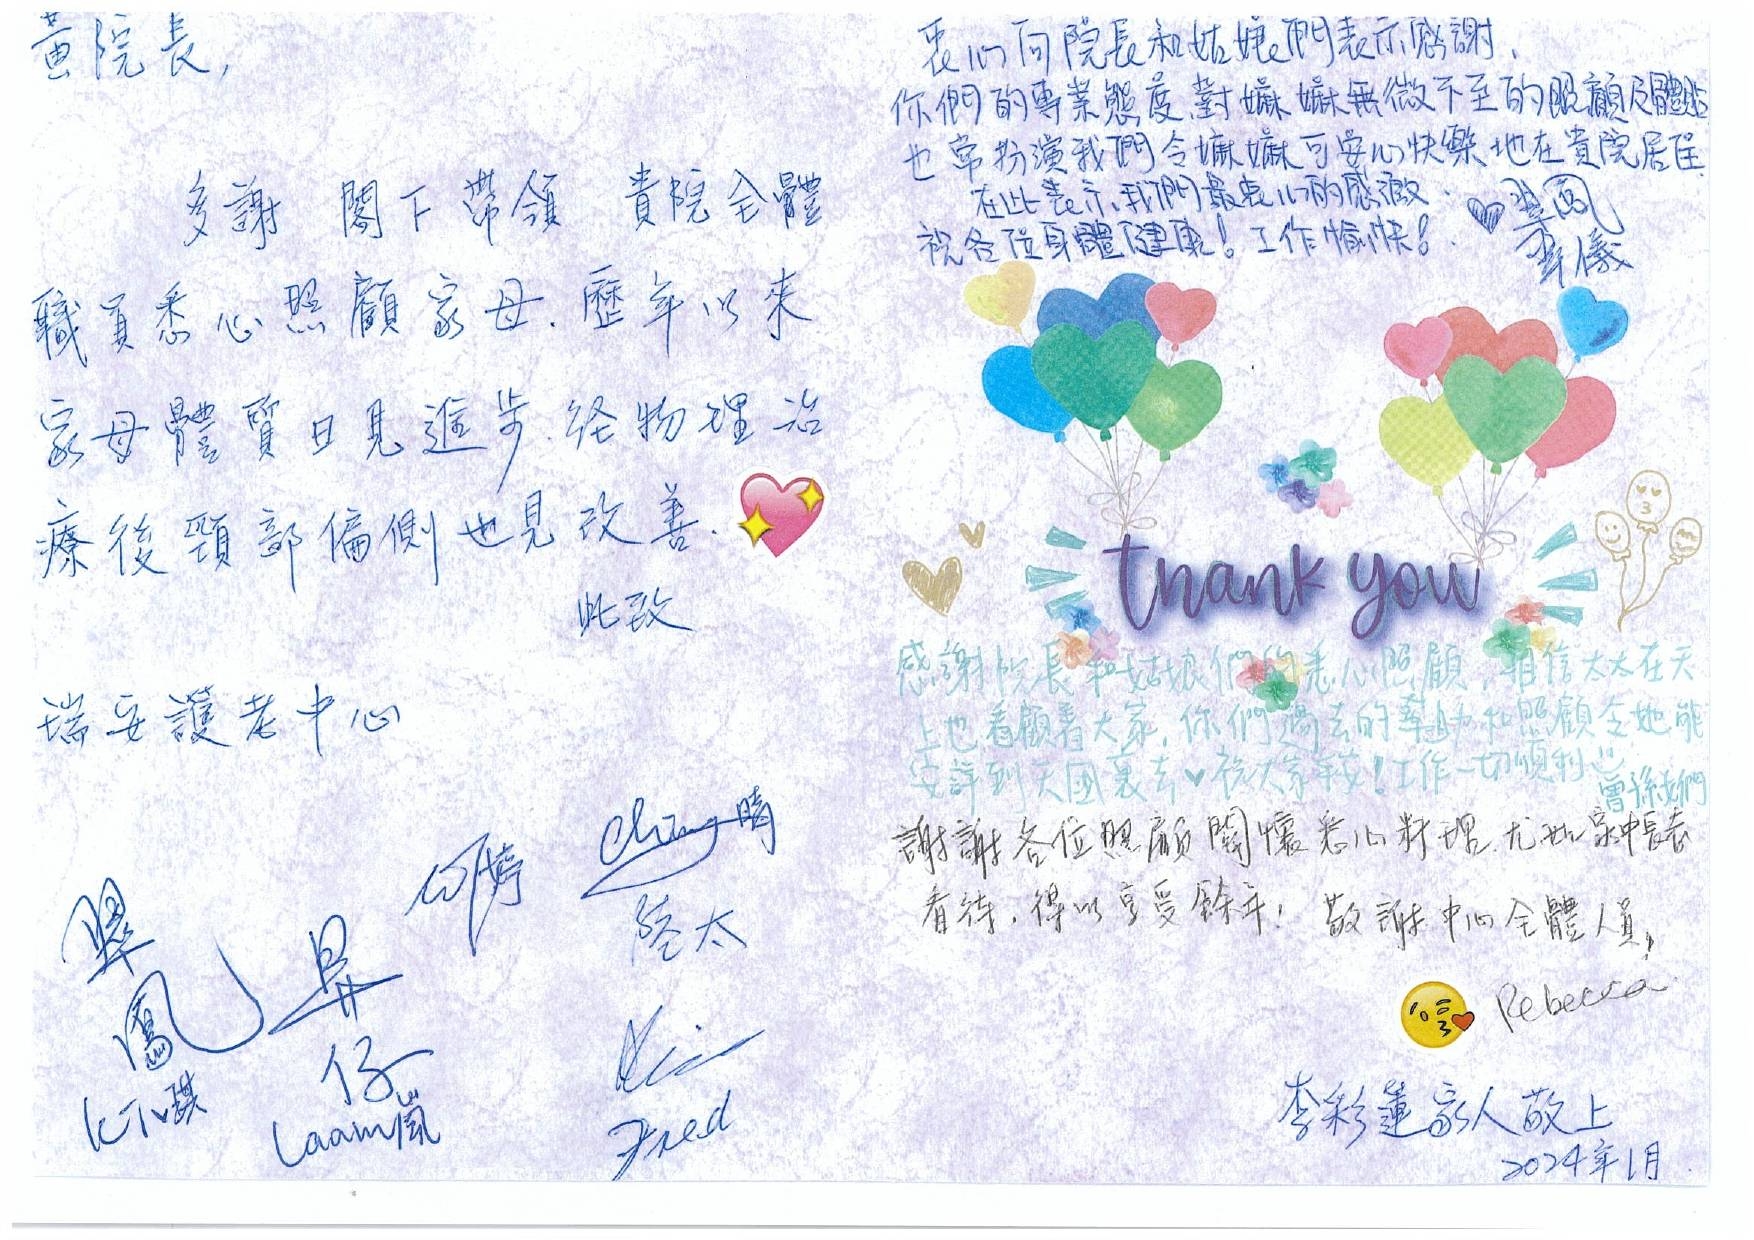 黃院長,
多謝 閣下帶領 貴院全體
職員悉心照顧家母. 歷年以來
家母體質日見進步. 经物理治
療後頸部偏側也見改善.
此致
瑞安護老中心
翠鳳
昇仔
Ching晴
陸太
Laam嵐
Fred
衷心向院長和姑娘們表示感謝,
你們的專業態度,對嫲嫲無微不至的照顧及體貼
也常扮演我們令嫲嫲可安心快樂地在貴院居住
在此表示我們最衷心的感激.
祝各位身體健康! 工作愉快!
翠鳳
thank you
感謝院長和姑娘們的悉心照顧,相信太太在天
上也看顧着大家,你們過去的幫助和照顧令她能
安詳到天國裏去♥祝大家平安!工作一切順利
曾孫女們
謝謝各位照顧關懷悉心料理,尤如家中長者
看待,得以享受餘年,敬謝中心全體人員,
Rebecca
李彩蓮家人敬上
2024年1月